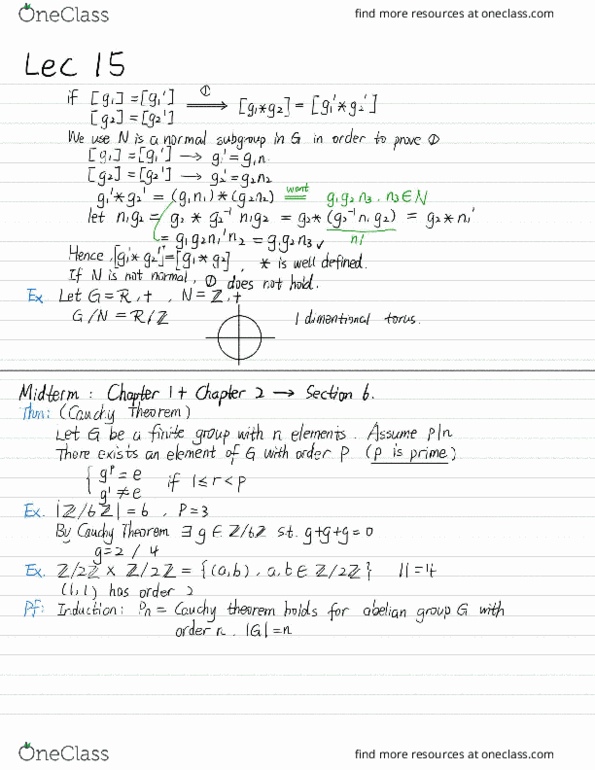 OneClass
find more resources at oneclass.com
Lec 15
if [g₁] = [g₁'] ① ⟹ [g₁*g₂] = [g₁'*g₂']
[g₂] = [g₂']
We use N is a normal subgroup in G in order to prove ①
[g₁] = [g₁'] → g₁' = g₁n₁
[g₂] = [g₂'] → g₂' = g₂n₂
g₁'*g₂' = (g₁n₁)*(g₂n₂) want = g₁g₂n₃, n₃∈N
let n₁g₂ = g₂ * g₂⁻¹ n₁g₂ = g₂*(g₂⁻¹n₁g₂) = g₂*n₁'
= g₁g₂n₁'n₂ = g₁g₂n₃ ✓ n₁'
Hence, [g₁'*g₂'] = [g₁*g₂], * is well defined.
If N is not normal, ① does not hold.
Ex. Let G = ℝ, +, N = ℤ, +
G/N = ℝ/ℤ 1 dimentional torus.
Midterm: Chapter 1 + Chapter 2 → Section 6.
Thm: (Cauchy Theorem)
Let G be a finite group with n elements. Assume p|n
There exists an element of G with order P (p is prime)
{ gᵖ = e
gʳ ≠ e if 1≤r<p
Ex. |ℤ/6ℤ| = 6, P=3
By Cauchy Theorem ∃ g ∈ ℤ/6ℤ s.t. g+g+g=0
g=2 / 4
Ex. ℤ/2ℤ × ℤ/2ℤ = {(a,b), a,b ∈ ℤ/2ℤ} | | = 4
(1,1) has order 2
Pf: Induction: Pn = Cauchy theorem holds for abelian group G with
order n. |G|=n
OneClass
find more resources at oneclass.com